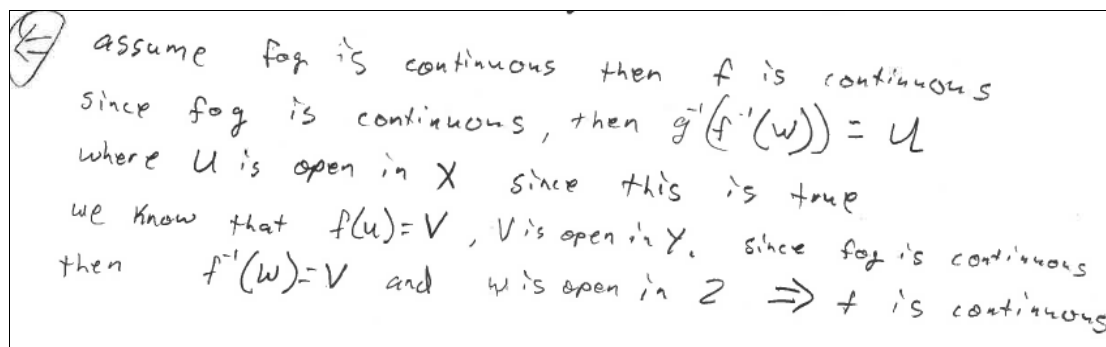 (⇐) assume f∘g is continuous then f is continuous
since f∘g is continuous, then g⁻¹(f⁻¹(w)) = U
where U is open in X since this is true
we know that f(u)=V, V is open in Y. since f∘g is continuous
then f⁻¹(w)=V and w is open in Z ⇒ f is continuous